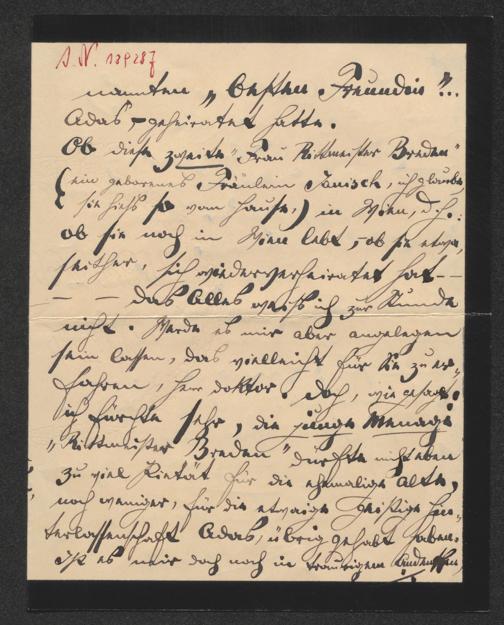 S. N. 129287
nannten „besten Freundin"..
Adas, geheiratet hatte.
Ob diese zweite „Frau Rittmeister Breden"
(ein geborenes Fräulein Janisch, ich glaube,
sie hieß so vom Hause,) in Wien, d. h.:
ob sie noch in Wien lebt, ob sie etwa,
seither, sich wiederverheiratet hat –
– – das Alles weiß ich zur Stunde
nicht. Werde es mir aber angelegen
sein lassen, das vielleicht für Sie zu er-
fahren, Herr Doktor. Doch, wie gesagt:
ich fürchte sehr, die junge Menage
„Rittmeister Breden" dürfte nicht eben
zu viel Pietät für die ehemalige Alte,
noch weniger, für die etwaige geistige Hin-
terlassenschaft Adas, übrig gehabt haben.
Ist es mir doch noch in traurigem Andenken,